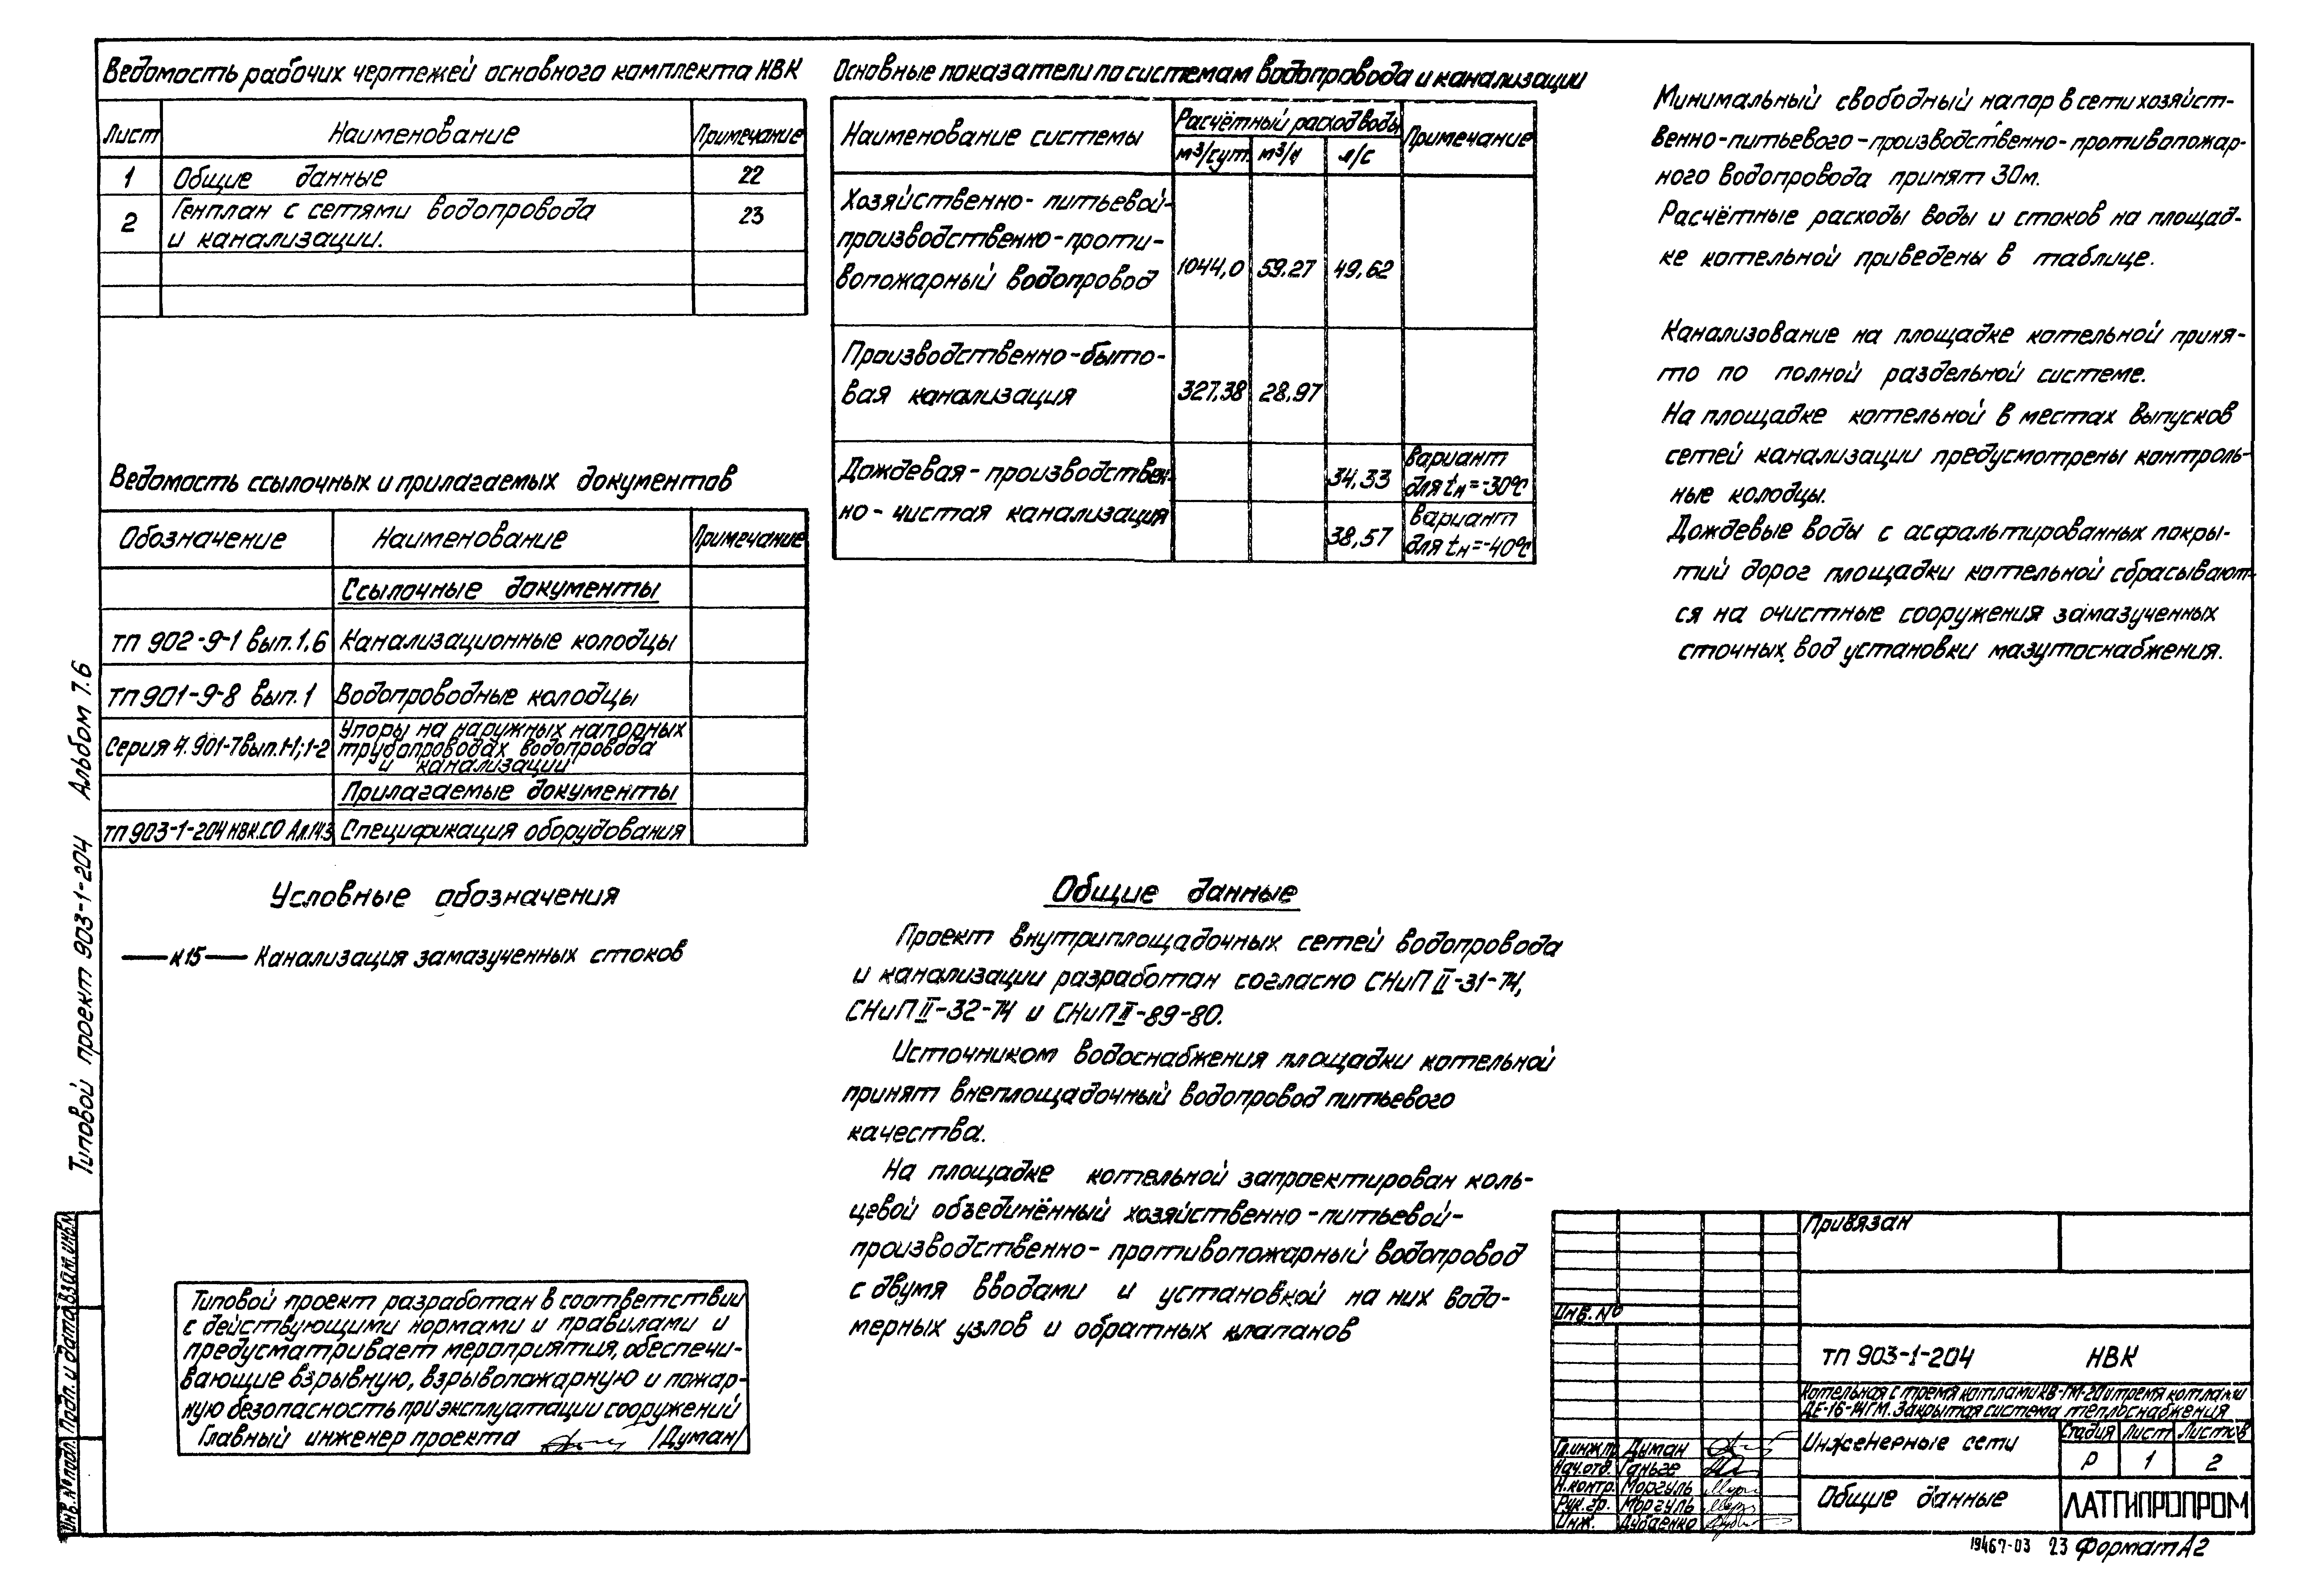 Ведомость рабочих чертежей основного комплекта НВК
Лист Наименование Примечание
1 Общие данные 22
2 Генплан с сетями водопровода 23
и канализации.
Ведомость ссылочных и прилагаемых документов
Обозначение Наименование Примечание
Ссылочные документы
ТП 902-9-1 вып.1,6 Канализационные колодцы
ТП 901-9-8 вып.1 Водопроводные колодцы
Серия 4.901-7 вып.1-1;1-2 Упоры на наружных напорных
трубопроводах водопровода
и канализации
Прилагаемые документы
ТП 903-1-204 НВК.СО Ал.14.3 Спецификация оборудования
Условные обозначения
—К15— Канализация замазученных стоков
Типовой проект разработан в соответствии
с действующими нормами и правилами и
предусматривает мероприятия, обеспечи-
вающие взрывную, взрывопожарную и пожар-
ную безопасность при эксплуатации сооружений
Главный инженер проекта /Думан/
Основные показатели по системам водопровода и канализации
Наименование системы Расчётный расход воды Примечание
м³/сут. м³/ч л/с
Хозяйственно-питьевой-
производственно-проти-
вопожарный водопровод 1044,0 59.27 49,62
Производственно-быто-
вая канализация 327,38 28,97
Дождевая-производствен- 34,33 вариант
для tн=-30°С
но-чистая канализация 38,57 вариант
для tн=-40°С
Общие данные
Проект внутриплощадочных сетей водопровода
и канализации разработан согласно СНиП II-31-74,
СНиП II-32-74 и СНиП II-89-80.
Источником водоснабжения площадки котельной
принят внеплощадочный водопровод питьевого
качества.
На площадке котельной запроектирован коль-
цевой объединённый хозяйственно-питьевой-
производственно-противопожарный водопровод
с двумя вводами и установкой на них водо-
мерных узлов и обратных клапанов
Минимальный свободный напор в сети хозяйст-
венно-питьевого-производственно-противопожар-
ного водопровода принят 30м.
Расчётные расходы воды и стоков на площад-
ке котельной приведены в таблице.
Канализование на площадке котельной приня-
то по полной раздельной системе.
На площадке котельной в местах выпусков
сетей канализации предусмотрены контроль-
ные колодцы.
Дождевые воды с асфальтированных покры-
тий дорог площадки котельной сбрасывают-
ся на очистные сооружения замазученных
сточных вод установки мазутоснабжения.
Типовой проект 903-1-204 Альбом 7.6
Инв.№ подл. Подп. и дата Взам.инв.№
Привязан
Инв.№
ТП 903-1-204 НВК
Котельная с тремя котлами КВ-ГМ-20 и тремя котлами
ДЕ-16-14ГМ. Закрытая система теплоснабжения
Инженерные сети
Стадия Лист Листов
Р 1 2
Общие данные
ЛАТГИПРОПРОМ
Гл.инж.пр. Думан
Нач.отд. Ганьге
Н.контр. Моргуль
Рук.гр. Моргуль
Инж. Дубаенко
19467-03 23 Формат А2